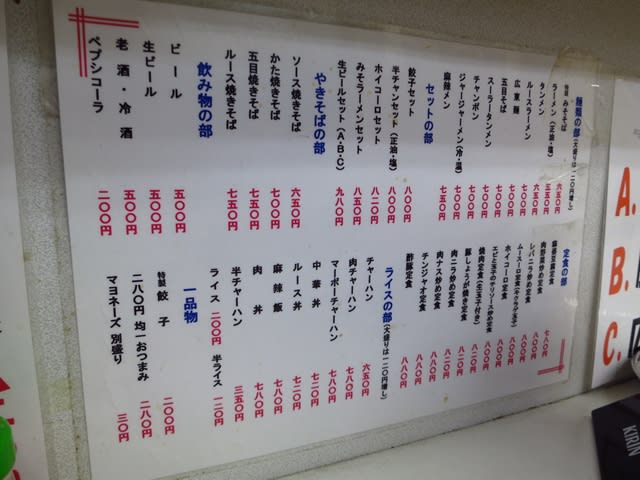 麺類の部(大盛りは一二〇円増し)
特製 みそそば 六五〇円
ラーメン(正油・塩) 五五〇円
タンメン 六五〇円
ルースラーメン 七〇〇円
広東麺 七〇〇円
五目そば 七〇〇円
スーラータンメン 七〇〇円
チャンポン 七〇〇円
ジャージャーメン(冷・温) 七〇〇円
麻辣メン 七五〇円
セットの部
餃子セット 八〇〇円
半チャンセット(正油・塩) 八〇〇円
ホイコーローセット 八二〇円
みそラーメンセット 八五〇円
生ビールセット(A・B・C) 九八〇円
やきそばの部
ソース焼きそば 六五〇円
かた焼きそば 七〇〇円
五目焼きそば 七五〇円
ルース焼きそば 七五〇円
飲み物の部
ビール 五〇〇円
生ビール 五〇〇円
老酒・冷酒 五〇〇円
ペプシコーラ 二〇〇円
定食の部
麻婆豆腐定食 七八〇円
肉野菜炒め定食 八〇〇円
レバニラ炒め定食 八〇〇円
ムースーロ定食(キクラゲ玉子) 八〇〇円
ホイコーロ定食 八〇〇円
エビと玉子のチリソース炒め定食
焼肉定食(生玉子付き)
豚しょうが焼き定食 八二〇円
肉ニラ炒め定食 八二〇円
肉ナス炒め定食 八二〇円
チンジャオ定食 八八〇円
酢豚定食 八八〇円
ライスの部(大盛りは一二〇円増し)
チャーハン 六五〇円
肉チャーハン 七八〇円
マーボーチャーハン 七八〇円
中華丼 七二〇円
ルース丼 七二〇円
麻辣飯 七八〇円
肉丼 七八〇円
半チャーハン 三五〇円
ライス 二〇〇円 半ライス 一二〇円
一品物
特製 餃子 二〇〇円
二八〇円均一おつまみ 二八〇円
マヨネーズ 別盛り 三〇円
A.
B.
C.
KIRIN